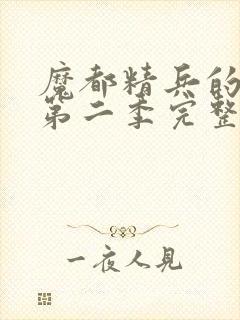 魔都精兵的
第二季完整
一夜人見